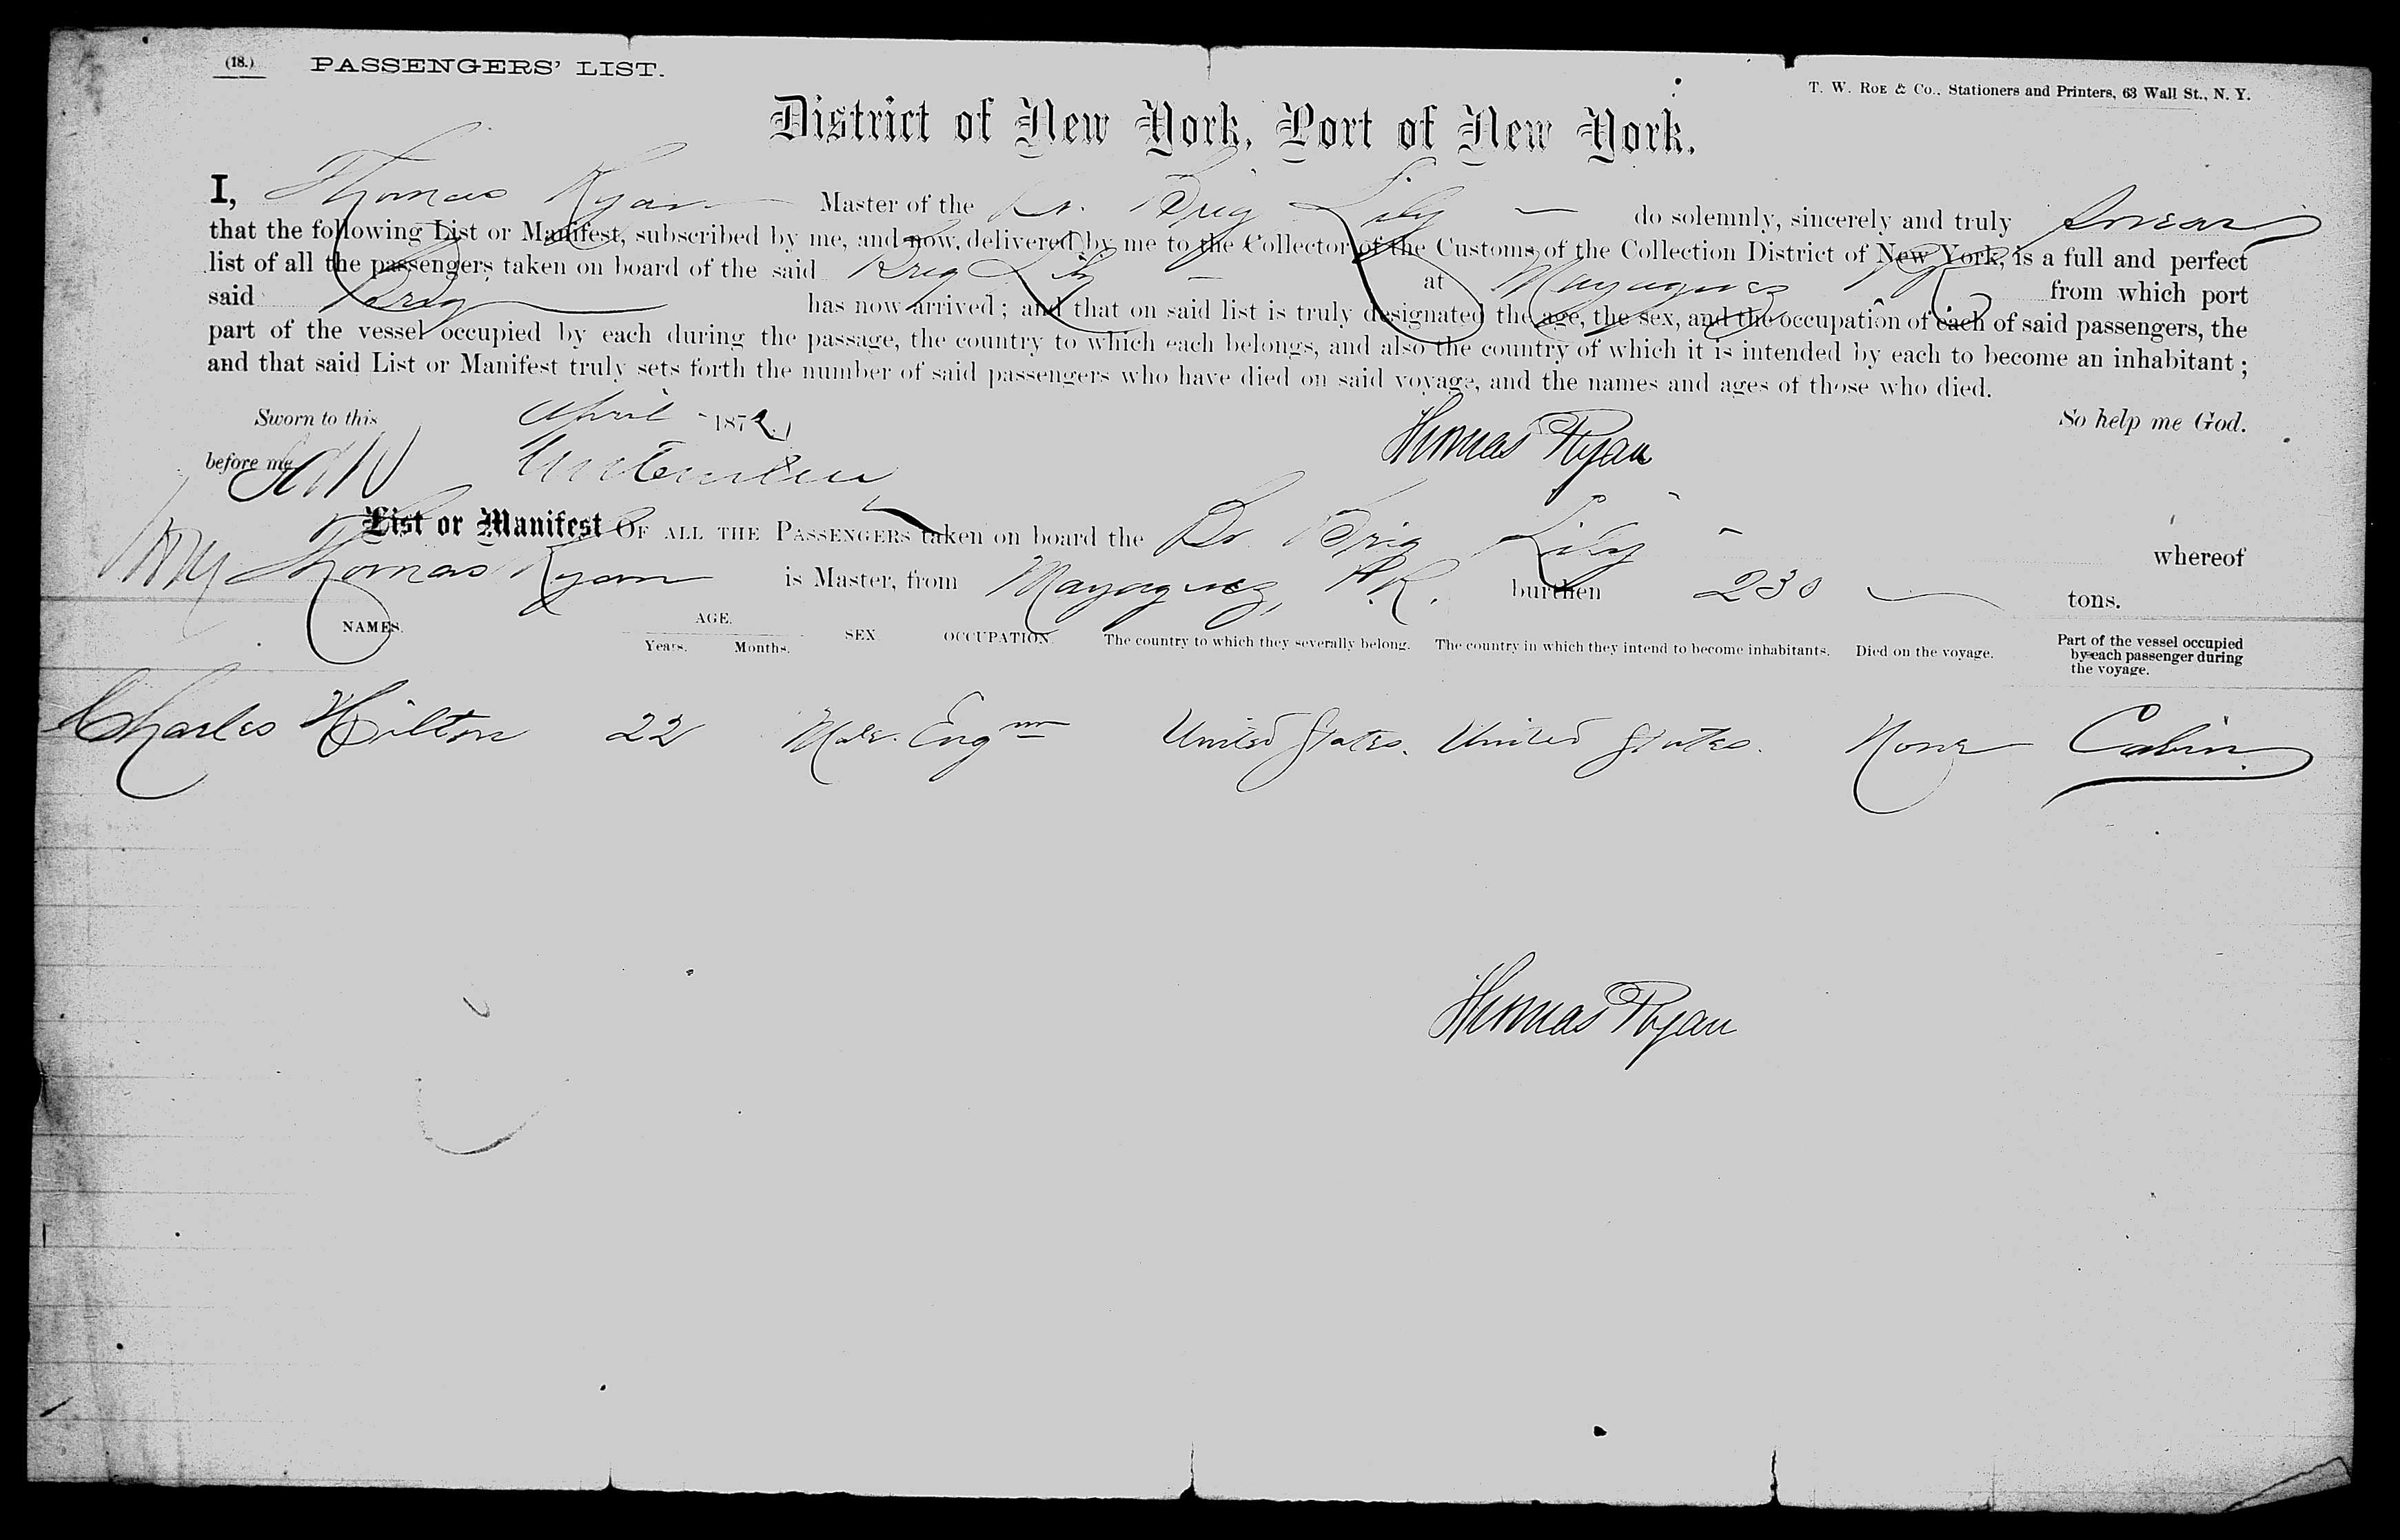 (18.) PASSENGERS' LIST.
T. W. ROE & Co., Stationers and Printers, 63 Wall St., N. Y.
District of New York, Port of New York.
I, Thomas Ryan Master of the Br. Brig Lily do solemnly, sincerely and truly swear
that the following List or Manifest, subscribed by me, and now delivered by me to the Collector of the Customs of the Collection District of New York, is a full and perfect
list of all the passengers taken on board of the said Brig Lily at Mayaguez P.R. from which port
said Brig has now arrived; and that on said list is truly designated the age, the sex, and the occupation of each of said passengers, the
part of the vessel occupied by each during the passage, the country to which each belongs, and also the country of which it is intended by each to become an inhabitant;
and that said List or Manifest truly sets forth the number of said passengers who have died on said voyage, and the names and ages of those who died.
Sworn to this April 1872. Thomas Ryan So help me God.
before me
List or Manifest OF ALL THE PASSENGERS taken on board the Br. Brig Lily whereof
Thomas Ryan is Master, from Mayaguez, P.R. burthen 230 tons.
NAMES. AGE. Years. Months. SEX OCCUPATION. The country to which they severally belong. The country in which they intend to become inhabitants. Died on the voyage. Part of the vessel occupied by each passenger during the voyage.
Charles Hilton 22 Male. Eng United States. United States. None Cabin.
Thomas Ryan